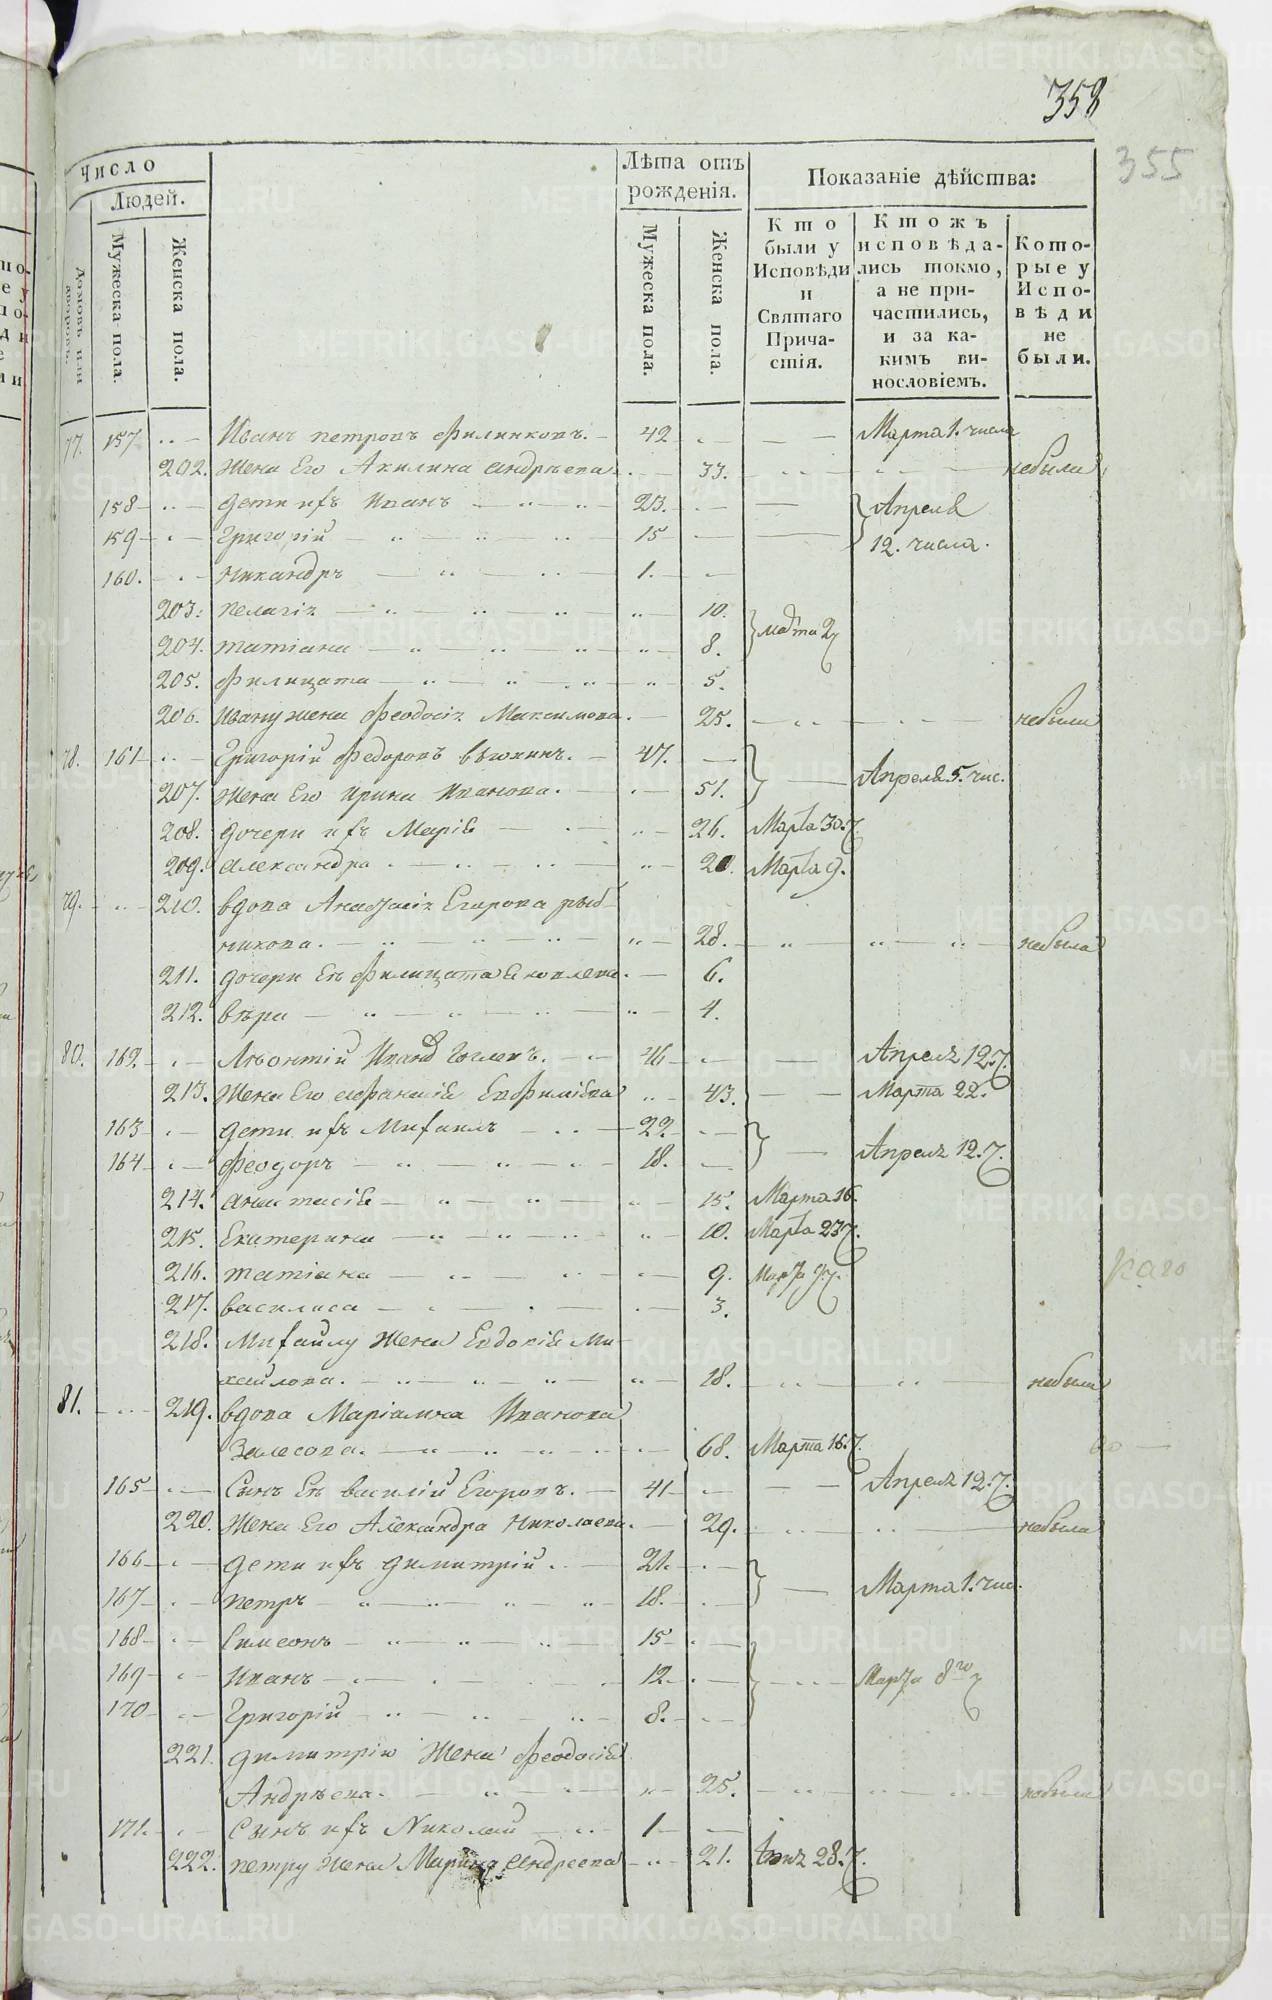 358
355
Число
Людей.
Домовъ или дворовъ.
Мужеска пола.
Женска пола.
Лѣта отъ рожденія.
Мужеска пола.
Женска пола.
Показаніе дѣйства:
Кто были у Исповѣди и Святаго Причастія.
Ктожъ исповѣдались токмо, а не причастились, и за какимъ винословіемъ.
Которые у Исповѣди не были.
77. 157 Иванъ петровъ Филинковъ. 42 Марта 1. числа
202. Жена Его Акилина Андрѣева 33. небыла
158 дети ихъ Иванъ 23. Апреля
159 Григорій 15 12. числа.
160. Никандръ 1.
203. пелагія 10.
204. татіана 8. марта
205. Филицата 5.
206. Ивану жена Феодосія Максимова. 25. небыла
78. 161 Григорій Федоровъ 47.
207. Жена Его Ирина Иванова. 51. Апреля 5. чис.
208. дочери ихъ Марія 26. Марта 30.
209. Александра 20. Марта 9.
79. 210. вдова Анастасія Егорова рыб-
никова. 28. небыла
211. дочери Ея Филицата Яковлева. 6.
212. вѣра 4.
80. 162. Леонтій Иванъ 46 Апреля 12.
213. Жена Его Евфимова 43. Марта 22.
163 дети ихъ Михаилъ 22.
164 Феодоръ 18. Апреля 12.
214. Анастасія 15. Марта 16.
215. Екатерина 10. Марта 23
216. татіана 9. Марта
217. василиса 3.
218. Михаилу Жена Евдокія Ми-
хайлова. 18. небыла
81. 219. вдова Маріамна Иванова
Залесова. 68. Марта 16.
165 Сынъ Ея василій Егоровъ. 41 Апреля 12.
220. Жена Его Александра Николаева. 29. небыла
166 дети ихъ димитрій. 21.
167 петръ 18. Марта 1. чис.
168 Симеонъ 15
169 Иванъ 12. Марта 8го
170 Григорій 8.
221. димитрію Жена Феодосія
Андрѣева. 25. небыла
171. Сынъ ихъ Николай 1
222. петру жена Марина Андреева 21. 28.
METRIKI.GASO-URAL.RU